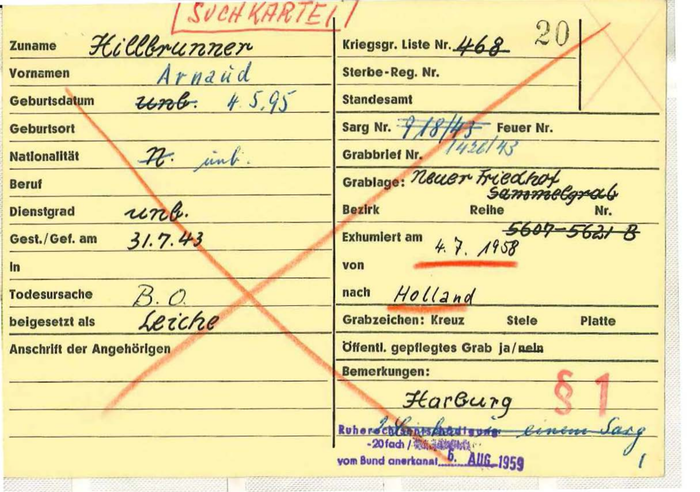 SUCHKARTEI
20
Zuname Hillbrunner
Vornamen Arnaud
Geburtsdatum unb. 4.5.95
Geburtsort
Nationalität N. unb.
Beruf
Dienstgrad unb.
Gest./Gef. am 31.7.43
in
Todesursache B.O.
beigesetzt als Leiche
Anschrift der Angehörigen
Kriegsgr. Liste Nr. 468
Sterbe-Reg. Nr.
Standesamt
Sarg Nr. 918/43 Feuer Nr.
Grabbrief Nr. 1420/43
Grablage: Neuer Friedhof
Sammelgrab
Bezirk Reihe Nr.
5607-5621 B
Exhumiert am 4.7.1958
von
nach Holland
Grabzeichen: Kreuz Stele Platte
Öffentl. gepflegtes Grab ja/nein
Bemerkungen:
Harburg
§ 1
einem Sarg
-20fach /
vom Bund anerkannt 6. AUG. 1959